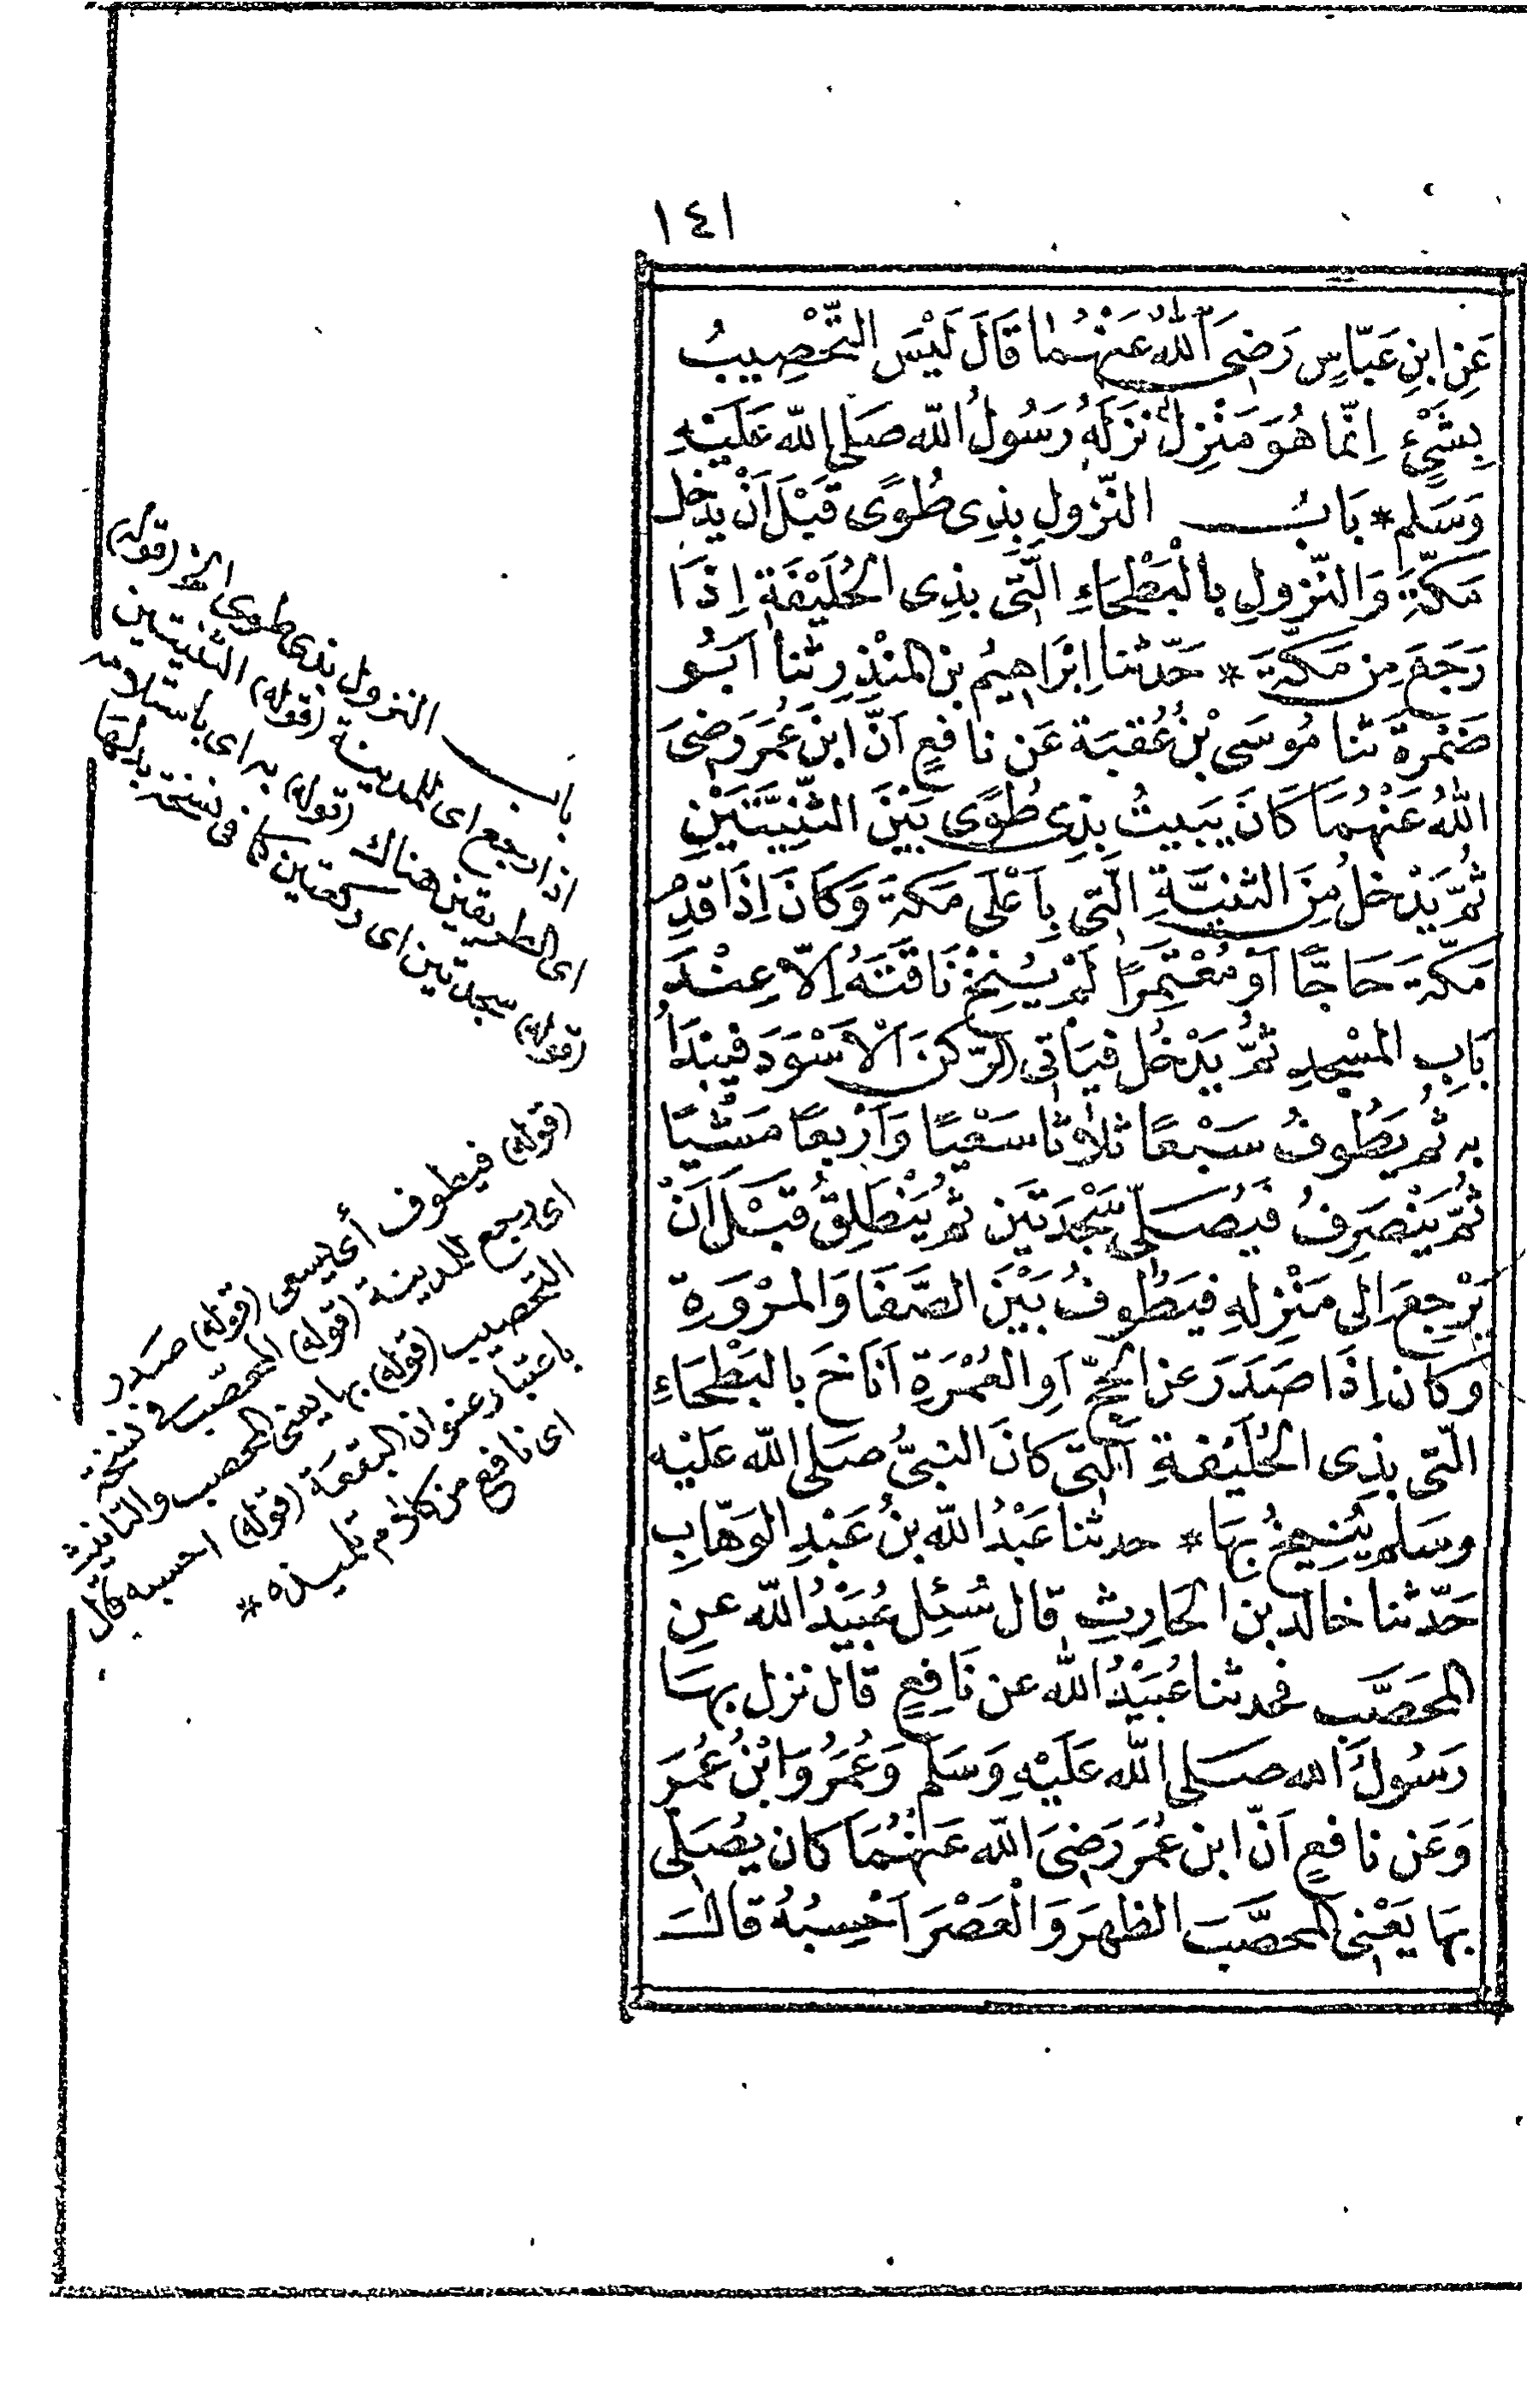 ١٤١
عَنِ ابنِ عَبّاسٍ رَضِىَ اَللّٰهُ عَنْهُما قَالَ لَيْسَ التَّحْصِيبُ
بِشَىْءٍ اِنّما هُوَ مَنْزِلٌ نَزَلَهُ رَسُولُ اللّه صَلى اللّه عَلَيْهِ
وَسَلم * بَابُ النّزولِ بِذِى طُوًى قَبْلَ اَنْ يَدْخل
مَكّةَ وَالنّزولِ بالْبَطْحَاءِ الَّتِى بذِى الحُلَيْفَةِ اِذَا
رَجَعَ مِن مَكّةَ * حَدّثنا اِبْرَاهِيمُ بن المنْذِرِ ثنا اَبُو
ضَمْرةَ ثنا مُوسَى بْنُ عُقبَة عَن نافعٍ اَنّ ابنَ عُمَرَ رَضِىَ
اللّهُ عَنْهُمَا كَانَ يَبَيتُ بِذِى طُوًى بَيْنَ الثّنِيَّتَيْنِ
ثُمَّ يَدْخلُ مِنَ الثنِيَّةِ الّتِى بِاَعْلَى مَكةَ وَكَانَ اِذَا قدِمُ
مَكّةَ حَاجًّا اَو مُعْتَمِرًا لَمْ يُنِخْ نَاقَتَهُ اِلّا عِنْدَ
بَابِ المسْجدِ ثمَّ يَدْخُل فيَأتى الرّكنَ اَلْاَسْوَدَ فيَبْدَأُ
به ثُم يَطُوفُ سَبْعًا ثلَاثا سَعْيًا وَاَرْبعًا مَشْيًا
ثُمَّ يَنْصَرِفُ فيُصَلِّى سَجْدَتَيَن ثم يَنْطَلِقُ قَبْلَ اَنْ
يَرْجِعَ اِلى مَنْزِلهِ فيَطُوفُ بَيْنَ الصَّفَا وَالمرْوَةِ
وَكان اِذَا صَدَرَ عن الحَجّ اَوِ العُمْرَةِ اَنَاخَ بالبَطْحَاءِ
الّتى بذِى الحُلَيْفةِ الّتى كانَ النبىُّ صَلى اللّه عَلَيْه
وسَلم يُنِيخُ بهَا * حدثنا عَبْدُ اللّه بنُ عَبْدِ الوَهّابِ
حَدّثنا خالد بن الحَارِثِ قال سُئِل عُبَيْدُ اللّه عنِ
المحَصَّبِ فحدثنا عُبَيْدُ اللّه عن نَافِعٍ قال نزل بهَا
رَسُولُ الله صَلى اللّه عَلَيْهِ وَسَلّم وَعُمَرُ وَابْنُ عُمَرَ
وَعَن نافعٍ اَنّ ابن عُمَرَ رَضِىَ اللّه عَنْهُمَا كان يُصَلّى
بهَا يَعْنِى المحصَّبَ الظهرَ وَالْعَصْرَ اَحْسِبُهُ قالَ
باب النزول بذى طوى الخ (قوله)
اذا رجع اى للمدينة (قوله) الثنيتين
اى الطريقين هناك (قوله) به اى باستلامه
(قوله) سجدتين اى ركعتين كما فى نسخة بدلها
(قوله) فيطوف أى يسعى (قوله) صدر
اى رجع للمدينة (قوله) المحصّب فى نسخة
التحصيب (قوله) بها يعنى المحصب والتأنيث
باعتبار عنوان البقعَة (قوله) احسبه قال
اى نافع من كلام تلميذه *